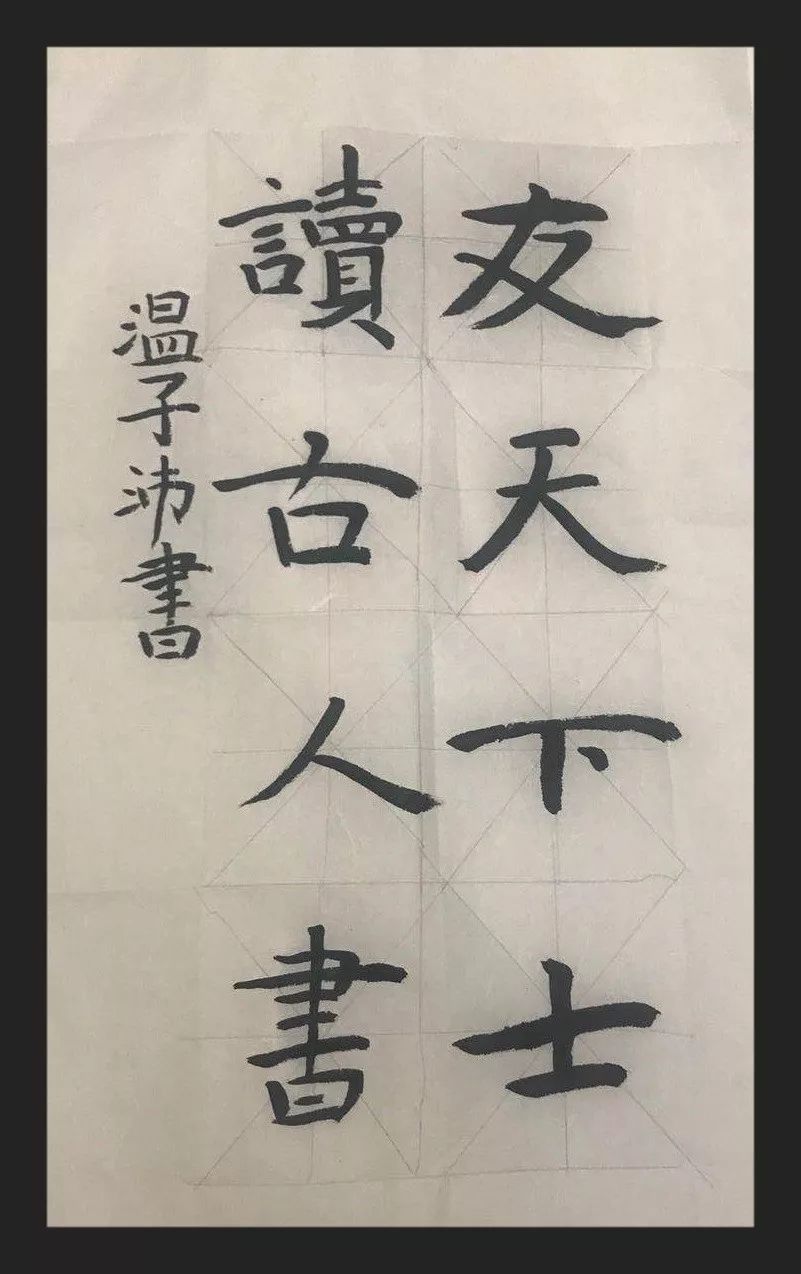 友天下士
讀古人書
温子沛書